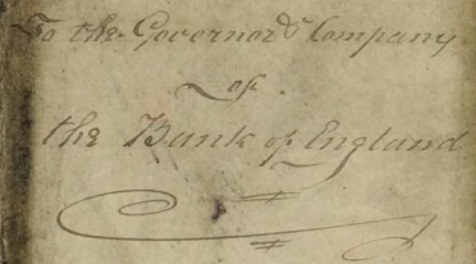 To the Governor & Company
of
the Bank of England